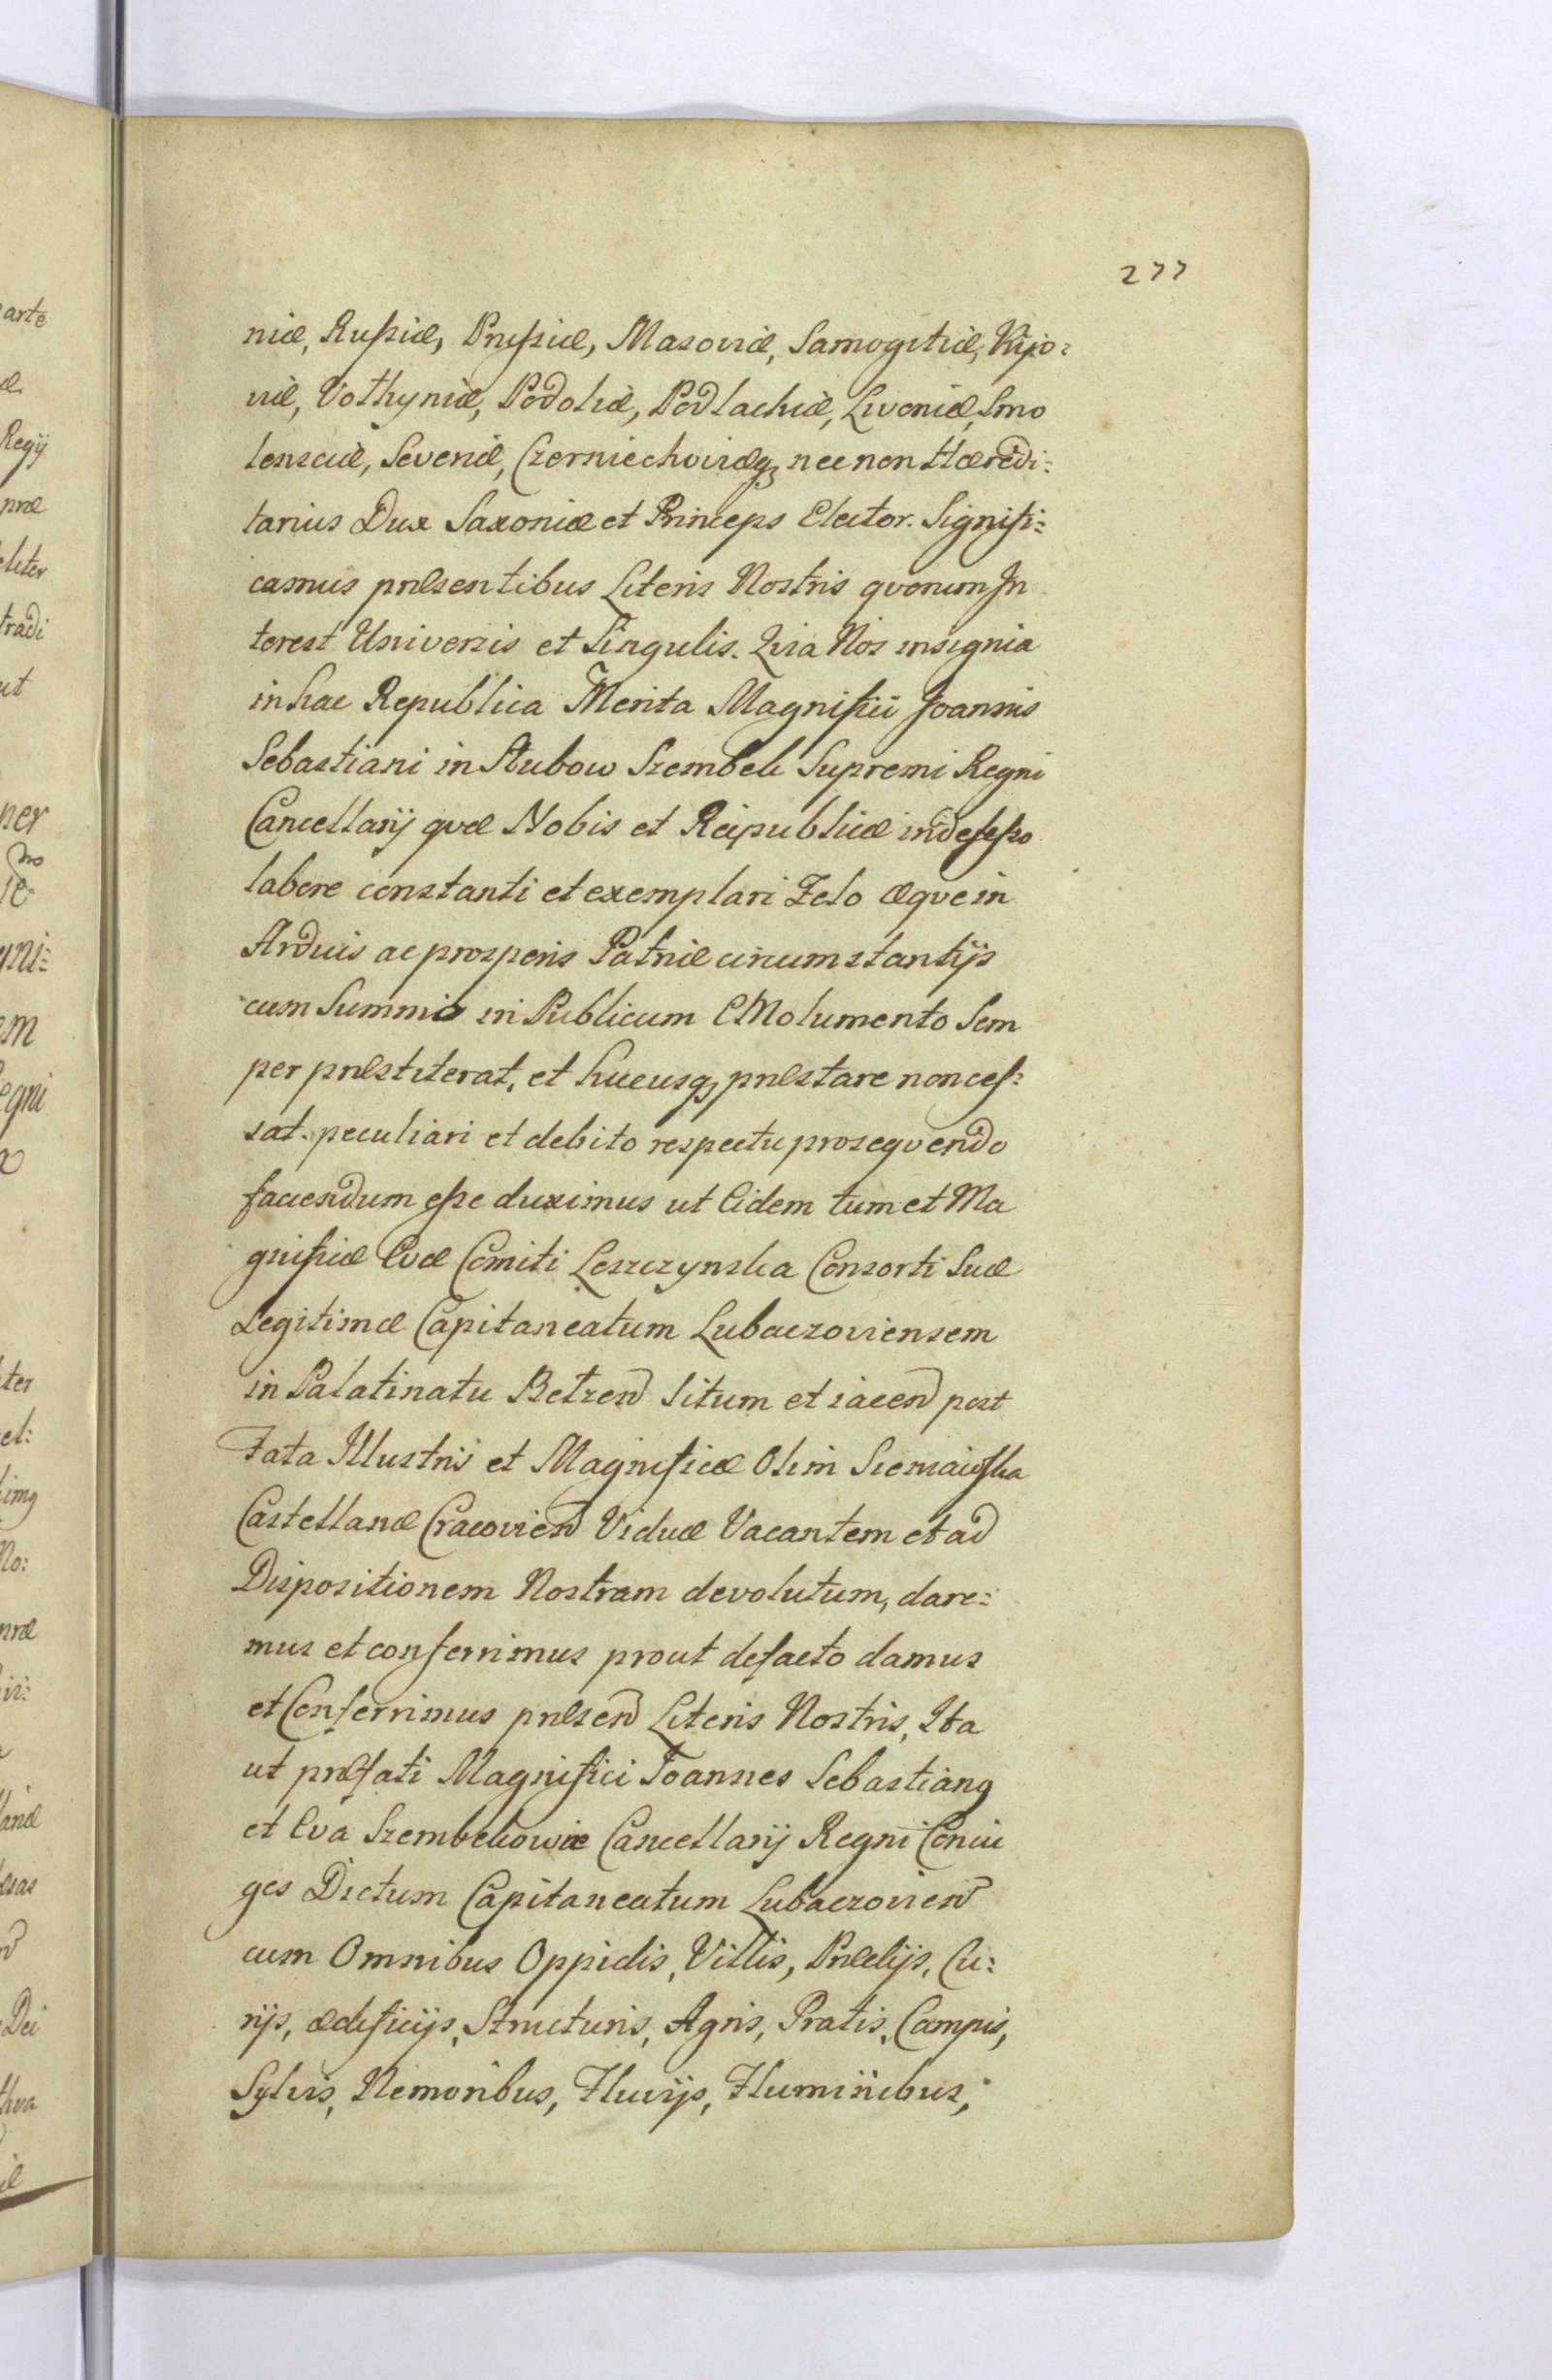 277
niæ, Rußiæ, Prußiæ, Masoviæ, Samogitiæ, Kijo:
viæ, Volhyniæ, Podoliæ, Podlachiæ, Livoniæ, Smo
lensciæ, Severiæ, Czerniechoviæq, nec non Hæredi:
tarius Dux Saxoniæ et Princeps Elector. Signifi:
camus præsentibus Literis Nostris qvorum In
terest Universis et Singulis. Qvia Nos insignia
in hac Republica Merita Magnifici Joannis
Sebastiani in Słubow Szembek Supremi Regni
Cancellarij qvæ Nobis et Reipublicæ indefeßo
labore constanti et exemplari Zelo æqve in
Arduis ac prosperis Patriæ circumstantijs
cum Summo in Publicum EMolumento Sem
per præstiterat, et hucusq, præstare non ces:
sat. peculiari et debito respectu proseqvendo
faciendum eße duximus ut Eidem tum et Ma
gnificæ Evæ Comiti Leszczynska Consorti Suæ
Legitimæ Capitaneatum Lubaczoviensem
in Palatinatu Betzen Situm et iacen post
Fata Illustris et Magnificæ Olim Sieniawska
Castellanæ Cracovien Viduæ Vacantem et ad
Dispositionem Nostram devolutum, dare:
mus et conferrimus prout defacto damus
et Conferrimus præsen Literis Nostris, Ita
ut præfati Magnifici Joannes Sebastiang
et Eva Szembekowie Cancellarij Regni Coniu
ges Dictum Capitaneatum Lubaczovien
cum Omnibus Oppidis, Villis, Prædijs, Cu:
rijs, ædificijs, Structuris, Agris, Pratis, Campis,
Sylvis, Nemoribus, Fluvijs, Fluminibus,